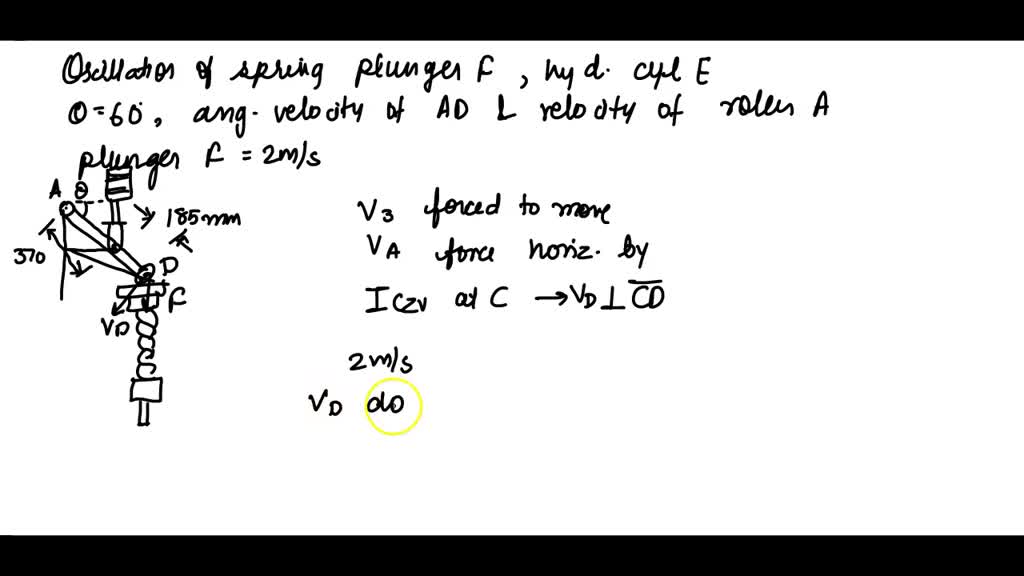 Oscillation of spring plunger F, hyd. cyl E
θ=60°, ang. velocity of AD & velocity of roller A
plunger F = 2m/s
A θ
185mm
370
D
F
VD
V3 forced to move
VA force horiz. by
I CZV at C → VD ⊥ CD
2m/s
VD do